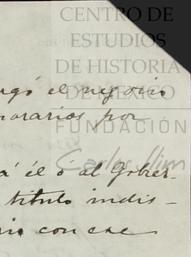 CENTRO DE
ESTUDIOS
DE HISTORIA
DE MÉXICO
FUNDACIÓN
Carlos Slim
el negocio
honorarios por
á él ó al Gober-
título indis-
con ese